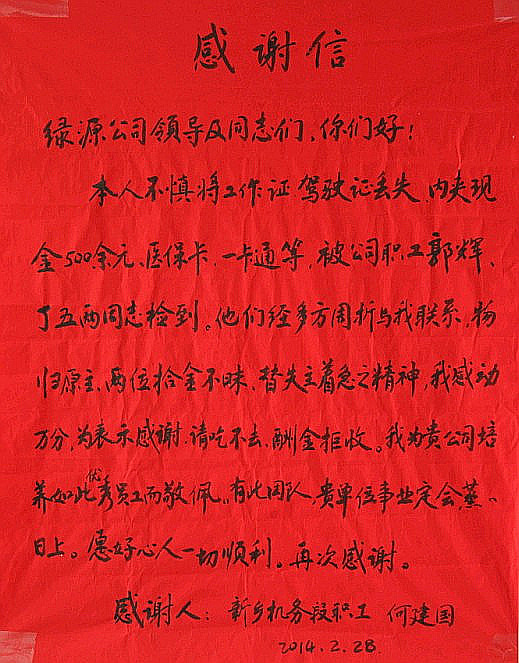 感谢信
绿源公司领导及同志们，你们好！
本人不慎将工作证驾驶证丢失，内夹现
金500余元、医保卡、一卡通等，被公司职工郭辉、
丁五两同志检到。他们经多方周折与我联系，物
归原主，两位拾金不昧，替失主着急之精神，我感动
万分，为表示感谢，请吃不去，酬金拒收。我为贵公司培
养如此优秀员工而敬佩。有此团队，贵单位事业定会蒸蒸
日上。愿好心人一切顺利。再次感谢。
感谢人：新乡机务段职工 何建国
2014.2.28